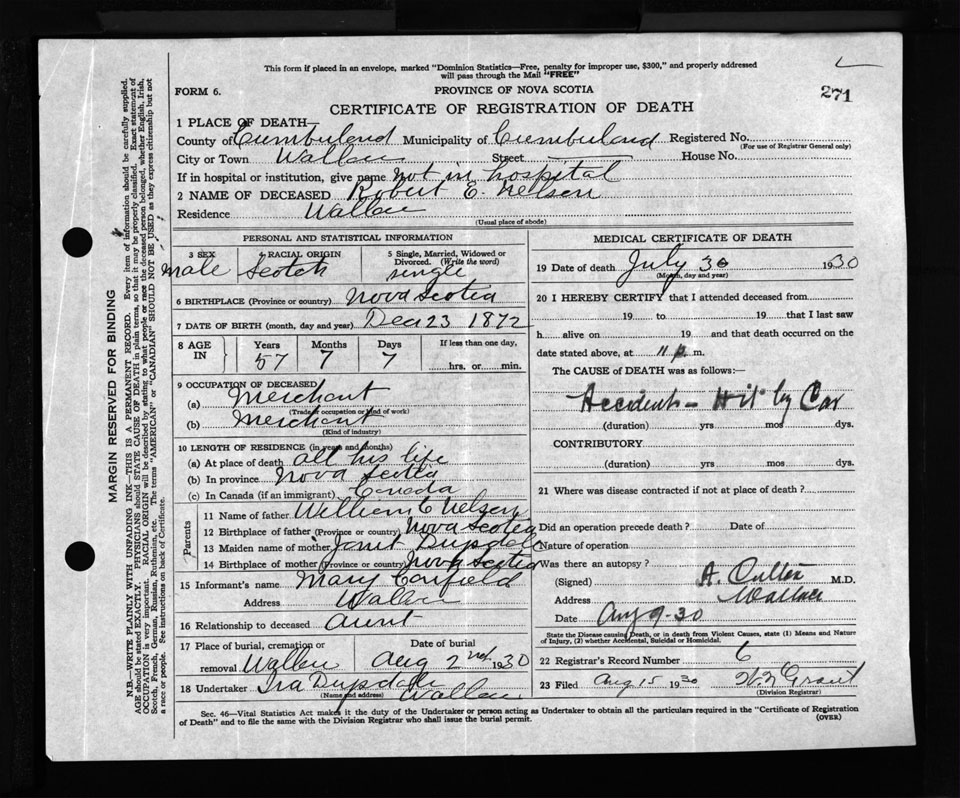 This form if placed in an envelope, marked "Dominion Statistics—Free, penalty for improper use, $300," and properly addressed
will pass through the Mail "FREE"
271
FORM 6.
PROVINCE OF NOVA SCOTIA
CERTIFICATE OF REGISTRATION OF DEATH
1 PLACE OF DEATH—
County of Cumberland Municipality of Cumberland Registered No.
(For use of Registrar General only)
City or Town Wallace Street House No.
If in hospital or institution, give name not in hospital
2 NAME OF DECEASED Robert E. Nelson
Residence Wallace
(Usual place of abode)
PERSONAL AND STATISTICAL INFORMATION
3 SEX 4 RACIAL ORIGIN 5 Single, Married, Widowed or
Divorced. (Write the word)
male Scotch single
6 BIRTHPLACE (Province or country) Nova Scotia
7 DATE OF BIRTH (month, day and year) Dec 23 1872
8 AGE IN Years Months Days If less than one day,
57 7 7 hrs. or min.
9 OCCUPATION OF DECEASED
(a) Merchant
(Trade, occupation or kind of work)
(b) Merchant
(Kind of industry)
10 LENGTH OF RESIDENCE (in years and months)
(a) At place of death all his life
(b) In province Nova Scotia
(c) In Canada (if an immigrant) Canada
Parents
11 Name of father William E Nelson
12 Birthplace of father (Province or country) Nova Scotia
13 Maiden name of mother
14 Birthplace of mother (Province or country) Nova Scotia
15 Informant's name Mary Canfield
Address Wallace
16 Relationship to deceased Aunt
17 Place of burial, cremation or Date of burial
removal Wallace Aug 2nd 1930
18 Undertaker Ira Wallace
(Name and address)
MEDICAL CERTIFICATE OF DEATH
19 Date of death July 30 1930
(Month, day and year)
20 I HEREBY CERTIFY that I attended deceased from
19 to 19 that I last saw
h alive on 19 and that death occurred on the
date stated above, at 11 p. m.
The CAUSE of DEATH was as follows:—
Accident - Hit by Car
(duration) yrs mos dys.
CONTRIBUTORY
(duration) yrs mos dys.
21 Where was disease contracted if not at place of death?
Did an operation precede death? Date of
Nature of operation
Was there an autopsy?
(Signed) A. M.D.
Address Wallace
Date Aug 9-30
State the Disease causing Death, or in death from Violent Causes, state (1) Means and Nature
of Injury, (2) whether Accidental, Suicidal or Homicidal.
22 Registrar's Record Number 6
23 Filed Aug 15 1930 Grant
(Division Registrar)
Sec. 46—Vital Statistics Act makes it the duty of the Undertaker or person acting as Undertaker to obtain all the particulars required in the "Certificate of Registration
of Death" and to file the same with the Division Registrar who shall issue the burial permit.
(OVER)
MARGIN RESERVED FOR BINDING
N.B.—WRITE PLAINLY WITH UNFADING INK—THIS IS A PERMANENT RECORD. Every item of information should be carefully supplied.
AGE should be stated EXACTLY. PHYSICIANS should STATE CAUSE OF DEATH in plain terms, so that it may be properly classified. Exact statement of
OCCUPATION is very important. RACIAL ORIGIN will be described by stating to what people or race the deceased person belonged, whether English, Irish,
Scotch, French, German, Russian, Ruthenian, etc. The terms "AMERICAN" or "CANADIAN" SHOULD NOT BE USED as they express citizenship but not
a race or people. See instructions on back of Certificate.